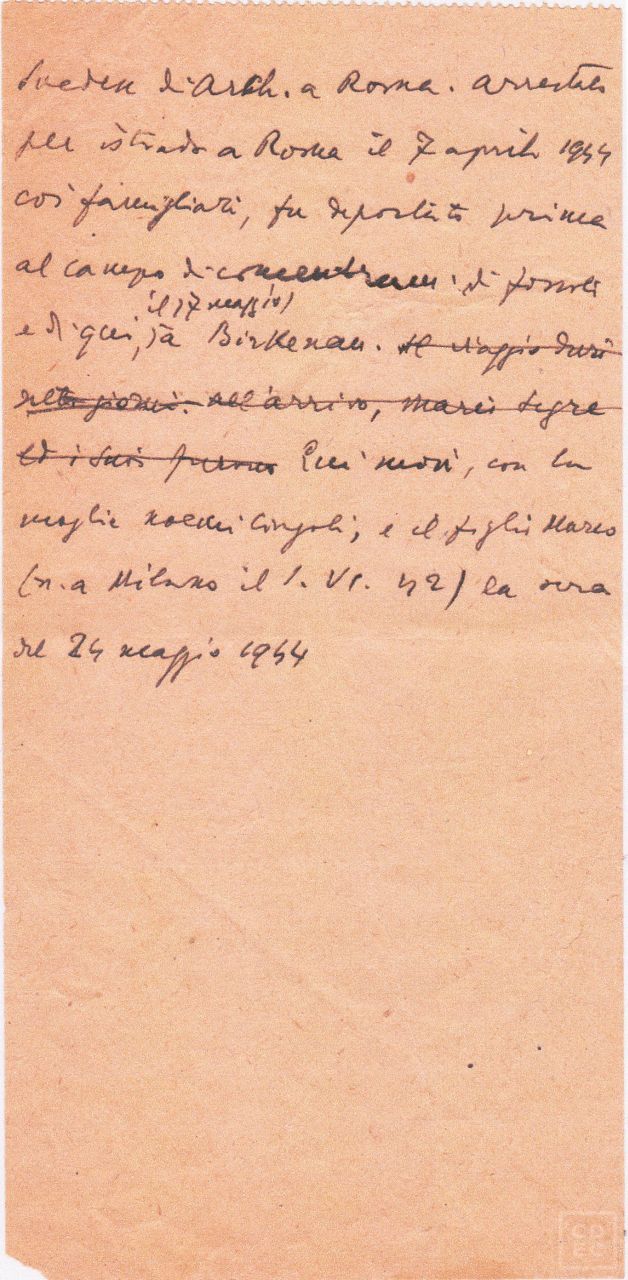 Svedese di Arch. a Roma. Arrestato
per istrada a Roma il 7 aprile 1944
coi famigliari, fu deportato prima
al campo di concentram. di Fossoli
il 17 maggio)
e di qui, a Birkenau. Il viaggio durò
sette giorni. All'arrivo, Mario Segre
ed i suoi furono Qui morì, con la
moglie Noemi Cingoli, e il figlio Marco
(n. a Milano il 1. VI. 42) la sera
del 24 maggio 1944
CDEC